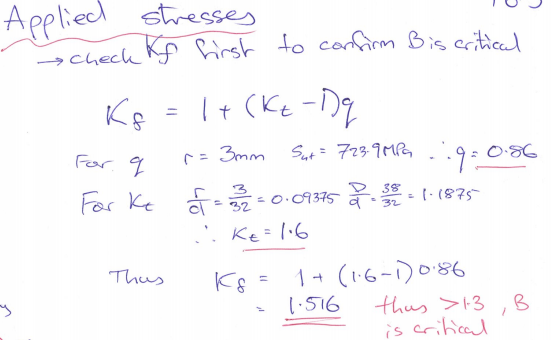 Applied stresses
→ check Kf first to confirm B is critical
Kf = 1 + (Kt - 1)q
For q r = 3mm Sut = 723.9MPa ∴ q = 0.86
For Kt r/d = 3/32 = 0.09375 D/d = 38/32 = 1.1875
∴ Kt = 1.6
Thus Kf = 1 + (1.6 - 1) 0.86
= 1.516 thus > 1.3, B
is critical